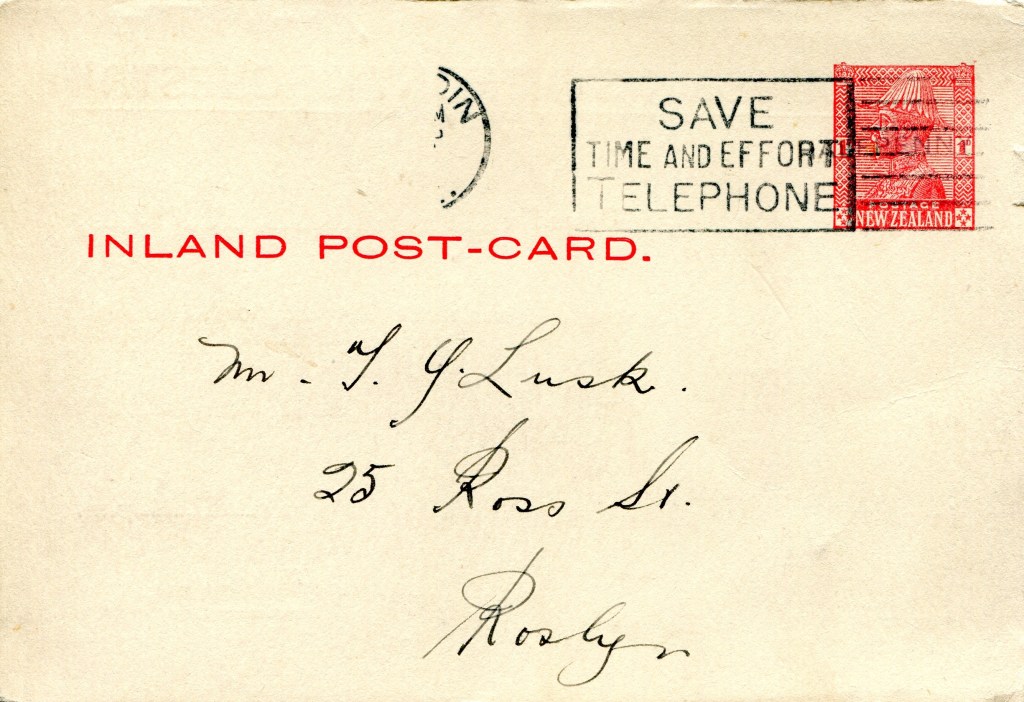 DIN
SAVE
TIME AND EFFORT
TELEPHONE
PENN
1ᴰ
POSTAGE
NEW ZEALAND
INLAND POST-CARD.
Mr. T. G. Lusk.
25 Ross St.
Roslyn